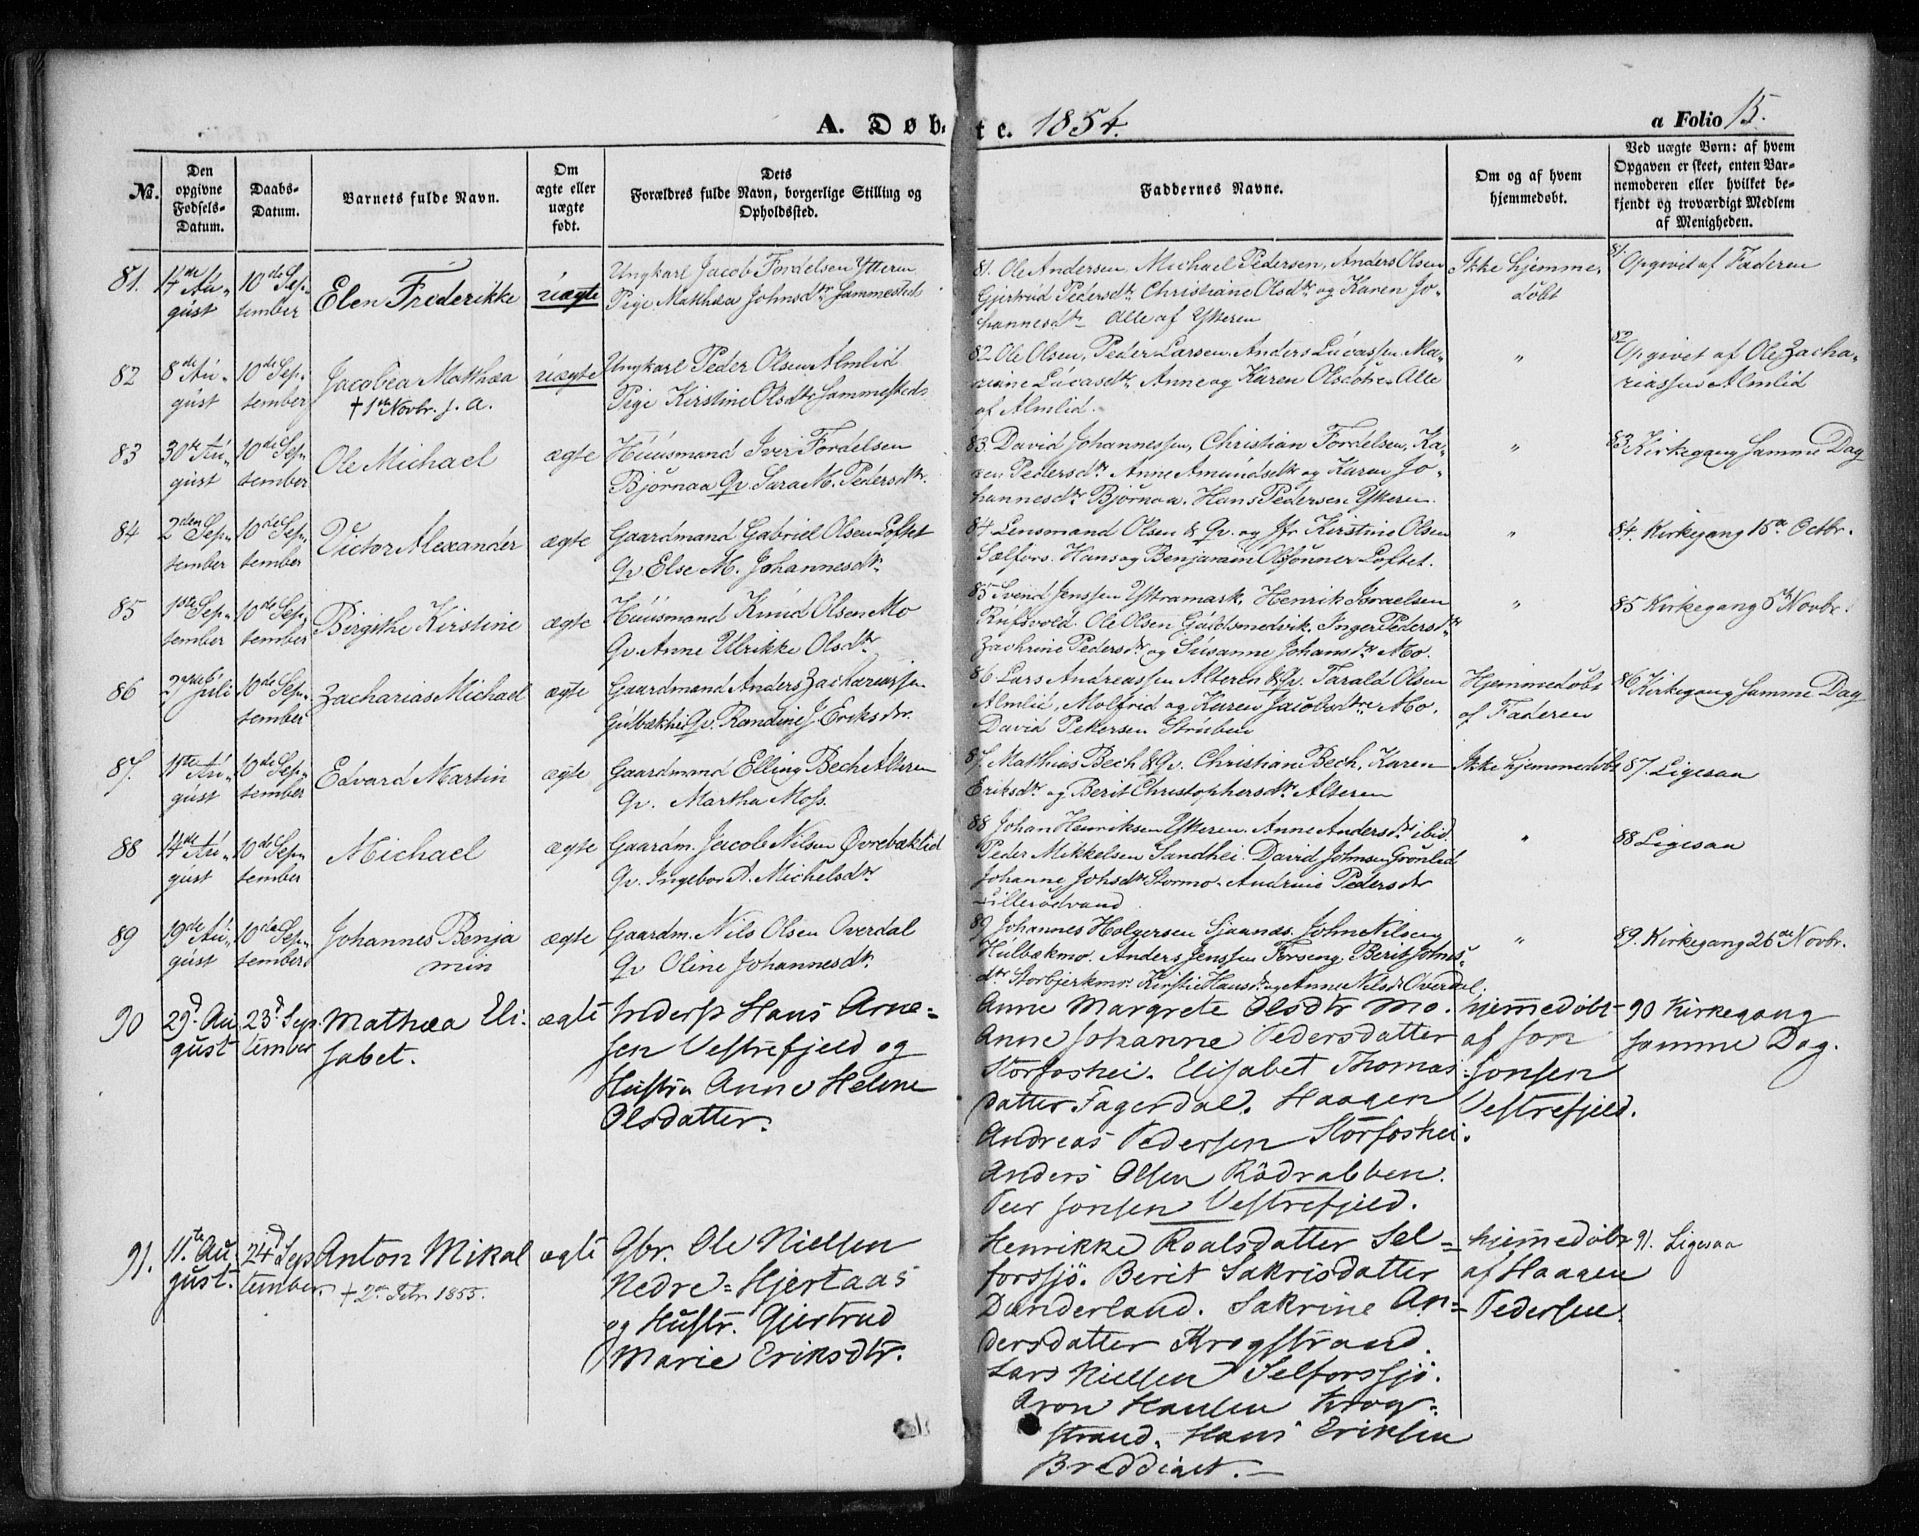 A. Døb-te. 1854.
a Folio 15.
No.
Den opgivne Fødsels-Datum.
Daabs-Datum.
Barnets fulde Navn.
Om ægte eller uægte født.
Dets Forældres fulde Navn, borgerlige Stilling og Opholdssted.
Faddernes Navne.
Om og af hvem hjemmedøbt.
Ved uægte Børn: af hvem Opgaven er skeet, enten Barnemoderen eller hvilket bekjendt og troværdigt Medlem af Menigheden.
81. 14de Au-
gust
10de Sep-
tember
Elen Frederikke
uægte
Ungkarl Jacob Fordelsen Ytteren
Pige Matthea Johnsdtr Sammesteds
81. Ole Andersen, Michael Pedersen, Anders Olsen
Gjertrud Pedersdtr. Christiane Olsdtr og Karen Jo-
hannesdtr Alle af Ytteren
Ikke hjemme-
døbt
81. Opgivet af Faderen
82 8de Au-
gust
10de Sep-
tember
Jacobea Mathæa
† 1ste Novbr. s. a.
uægte
Ungkarl Peder Olsen Almlid
Pige Kirstine Olsdtr Sammesteds
82 Ole Olsen, Peder Larsen, Anders Lucassen, Ma-
riane Lucasdtr. Anne og Karen Olsdøtre Alle
af Almlid.
"
82 Opgivet af Ole Zacha-
riassen Almlid
83 30te Au-
gust
10de Sep-
tember
Ole Michael
ægte
Huusmand Iver Fordelsen
Bjørnaa Qv. Sara M. Pedersdtr.
83. David Johannessen, Christian Fordelsen, Ka-
ren Pedersdtr Anne Amundsdtr og Karen Jo-
hannesdtr Bjørnaa. Hans Pedersen Ytteren.
"
83. Kirkegang samme Dag
84 2den Sep-
tember
10de Sep-
tember
Victor Alexander
ægte
Gaardmand Gabriel Olsen Loftet
Qv Else M. Johannesdtr.
84 Lensmand Olsen & Qv. og Jfr Kirstine Olsen
Sælfors. Hans og Benjamin Olsønner Loftet.
"
84. Kirkegang 15de Octbr.
85 1ste Sep-
tember
10de Sep-
tember
Birgithe Kirstine
ægte
Huusmand Knud Olsen Mo
Qv. Anne Ulrikke Olsdtr
85 Svend Jenssen Yttramark, Henrik Israelsen
Rufsvold. Ole Olsen Guldsmedvik. Inger Pedersdtr
Zachrine Pedersdtr og Susanne Johansdtr Mo.
"
85 Kirkegang 5te Novbr.
86 27de Juli
10de Sep-
tember
Zacharias Michael
ægte
Gaardmand Anders Zachariassen
Qv. Randine J. Eriksdtr.
86 Lars Andreassen Alteren & Qv. Tarald Olsen
Almlid, Molfrid og Karen Jacobsdtre Mo.
David Petersen Struben
Hjemmedøbt
af Faderen
86 Kirkegang samme Dag
87. 11te Au-
gust
10de Sep-
tember
Edvard Martin
ægte
Gaardmand Elling Bech Alteren
Qv. Martha Moss.
87 Matthias Bech & Qv. Christian Bech, Karen
Eriksdtr og Berit Christophersdtr Alteren
Ikke hjemmedøbt
87. Ligesaa
88 14de Au-
gust
10de Sep-
tember
Michael
ægte
Gaardm. Jacob Nilsen Øvrebæklid
Qv. Ingebor A. Michelsdtr
88 Johan Henriksen Ytteren. Anne Andersdtr ibid
Peder Mikkelsen Sandhei. David Johnsen Grønlid
Johanne Johsdtr Stormo. Pedersdtr
Lillerødvand
"
88 Ligesaa
89 19de Au-
gust
10de Sep-
tember
Johannes Benja
min
ægte
Gaardm. Nils Olsen Overdal
Qv Oline Johannesdtr.
89 Johannes Holgersen Sjaanæs. John Nilsen
Hulbækmo. Anders Jenssen Forseng. Berit Johns-
dtr Storbjerkmo. Kirstie Hansdtr og Anne Nilsdtr Overdal.
"
89. Kirkegang 26de Novbr.
90 29d. Au
gust
23d Sep
tember
Mathæa Eli-
sabet.
ægte
Inderst Hans Arne-
sen Vestrefjeld og
Hustru Anne Helene
Olsdatter.
Anne Margrete Olsdtr Mo.
Anne Johanne Pedersdatter
Storfoshei. Elisabet Thomas-
datter Fagerdal. Haagen
Andreas Pedersen Storfoshei.
Anders Olsen Rödrabben.
Peer Jonsen Vestrefjeld.
hjemmedøbt
af Jon
Jonsen
Vestrefjeld.
90 Kirkegang
samme Dag.
91. 11te Au
gust.
24d Sep
tember.
Anton Mikal
† 2den Febr. 1855.
ægte
Gbr. Ole Nielsen
Nedre-Hjertaas
og Hustr. Gjertrud
Marie Eriksdtr.
Henrikke Roalsdatter Sel-
forssjö. Berit Sakrisdatter
Dunderland. Sakrine An-
dersdatter Krogstrand.
Lars Nielsen Selforssjö.
Aron Hansen Krog-
strand. Hans Eriksen
Breddiket.
hjemmedøbt
af Haagen
Pedersen.
91. Ligesaa